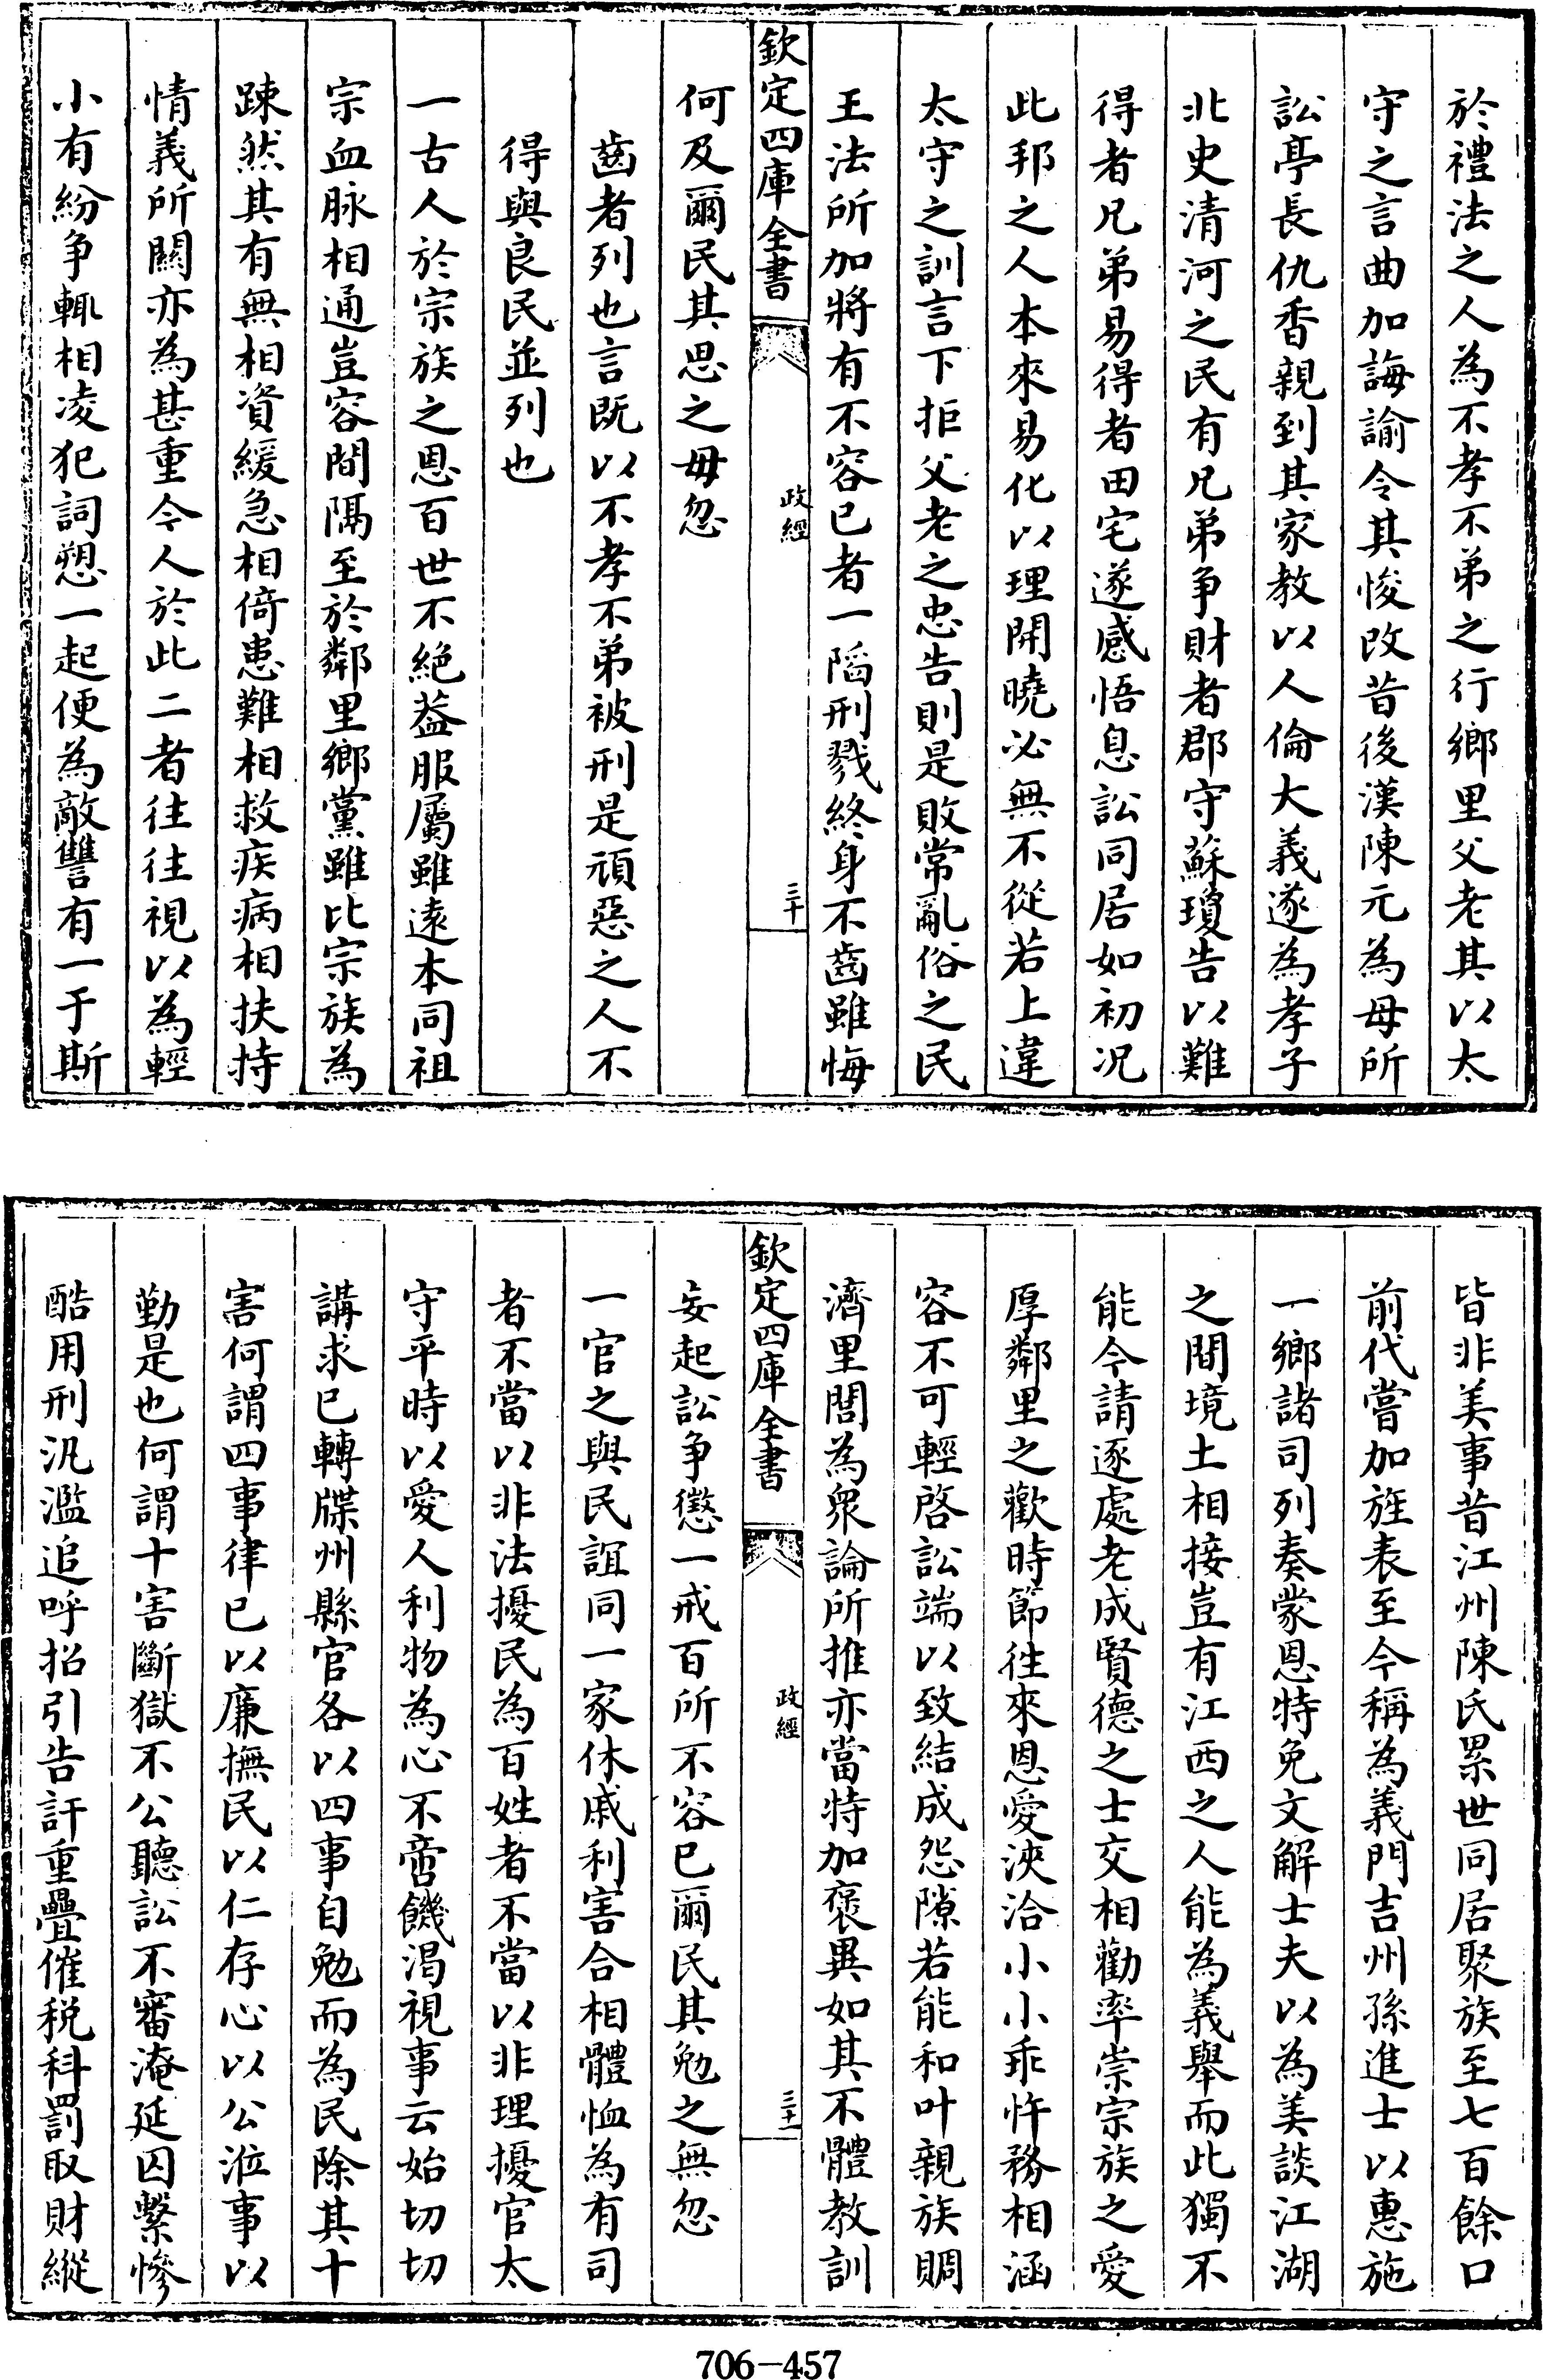 於禮法之人為不孝不弟之行鄉里父老其以太
守之言曲加誨諭令其悛改昔後漢陳元為母所
訟亭長仇香親到其家教以人倫大義遂為孝子
北史清河之民有兄弟爭財者郡守蘇瓊告以難
得者兄弟易得者田宅遂感悟息訟同居如初况
此邦之人本來易化以理開曉必無不從若上違
太守之訓言下拒父老之忠告則是敗常亂俗之民
王法所加將有不容已者一䧟刑戮終身不齒雖悔
欽定四庫全書
政經
三十
何及爾民其思之毋忽
齒者列也言既以不孝不弟被刑是頑惡之人不
得與良民並列也
一古人於宗族之恩百世不絶葢服屬雖逺本同祖
宗血脉相通豈容間隔至於鄰里鄉黨雖比宗族為
踈然其有無相資緩急相倚患難相救疾病相扶持
情義所關亦為甚重今人於此二者往往視以為輕
小有紛争輒相凌犯詞愬一起便為敵讐有一于斯
皆非美事昔江州陳氏累世同居聚族至七百餘口
前代嘗加旌表至今稱為義門吉州孫進士以惠施
一鄉諸司列奏蒙恩特免文解士夫以為美談江湖
之間境土相接豈有江西之人能為義舉而此獨不
能今請逐處老成賢德之士交相勸率崇宗族之愛
厚鄰里之歡時節徃來恩愛浹洽小小乖忤務相涵
容不可輕啓訟端以致結成怨隙若能和叶親族賙
濟里閭為衆論所推亦當特加褒異如其不體教訓
欽定四庫全書
政經
三十一
妄起訟争懲一戒百所不容已爾民其勉之無忽
一官之與民誼同一家休戚利害合相體恤為有司
者不當以非法擾民為百姓者不當以非理擾官太
守平時以愛人利物為心不啻饑渴視事云始切切
講求已轉牒州縣官各以四事自勉而為民除其十
害何謂四事律已以廉撫民以仁存心以公涖事以
勤是也何謂十害斷獄不公聽訟不審淹延囚繫慘
酷用刑汎濫追呼招引告訐重疊催税科罰取財縱
706-457